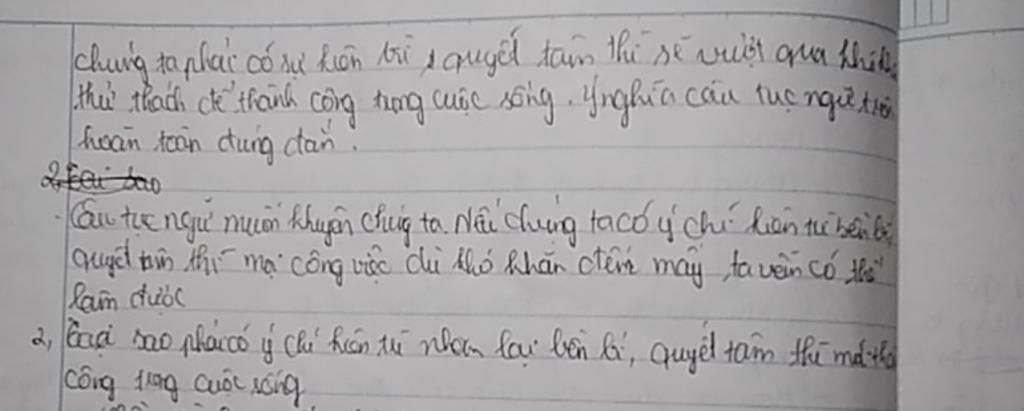 chúng ta phải có sự kiên trì, quyết tâm thì sẽ vượt qua khó
thử thách để thành công trong cuộc sống. Ý nghĩa câu tục ngữ trên
hoàn toàn đúng đắn.
2, Tại sao
- Câu tục ngữ muốn khuyên chúng ta. Nếu chúng ta có ý chí kiên trì bền bỉ
quyết tâm thì mọi công việc dù khó khăn đến mấy ta vẫn có thể
làm được
2, Tại sao phải có ý chí kiên trì nhẫn lại bền bỉ, quyết tâm thì mới thà
công trong cuộc sống